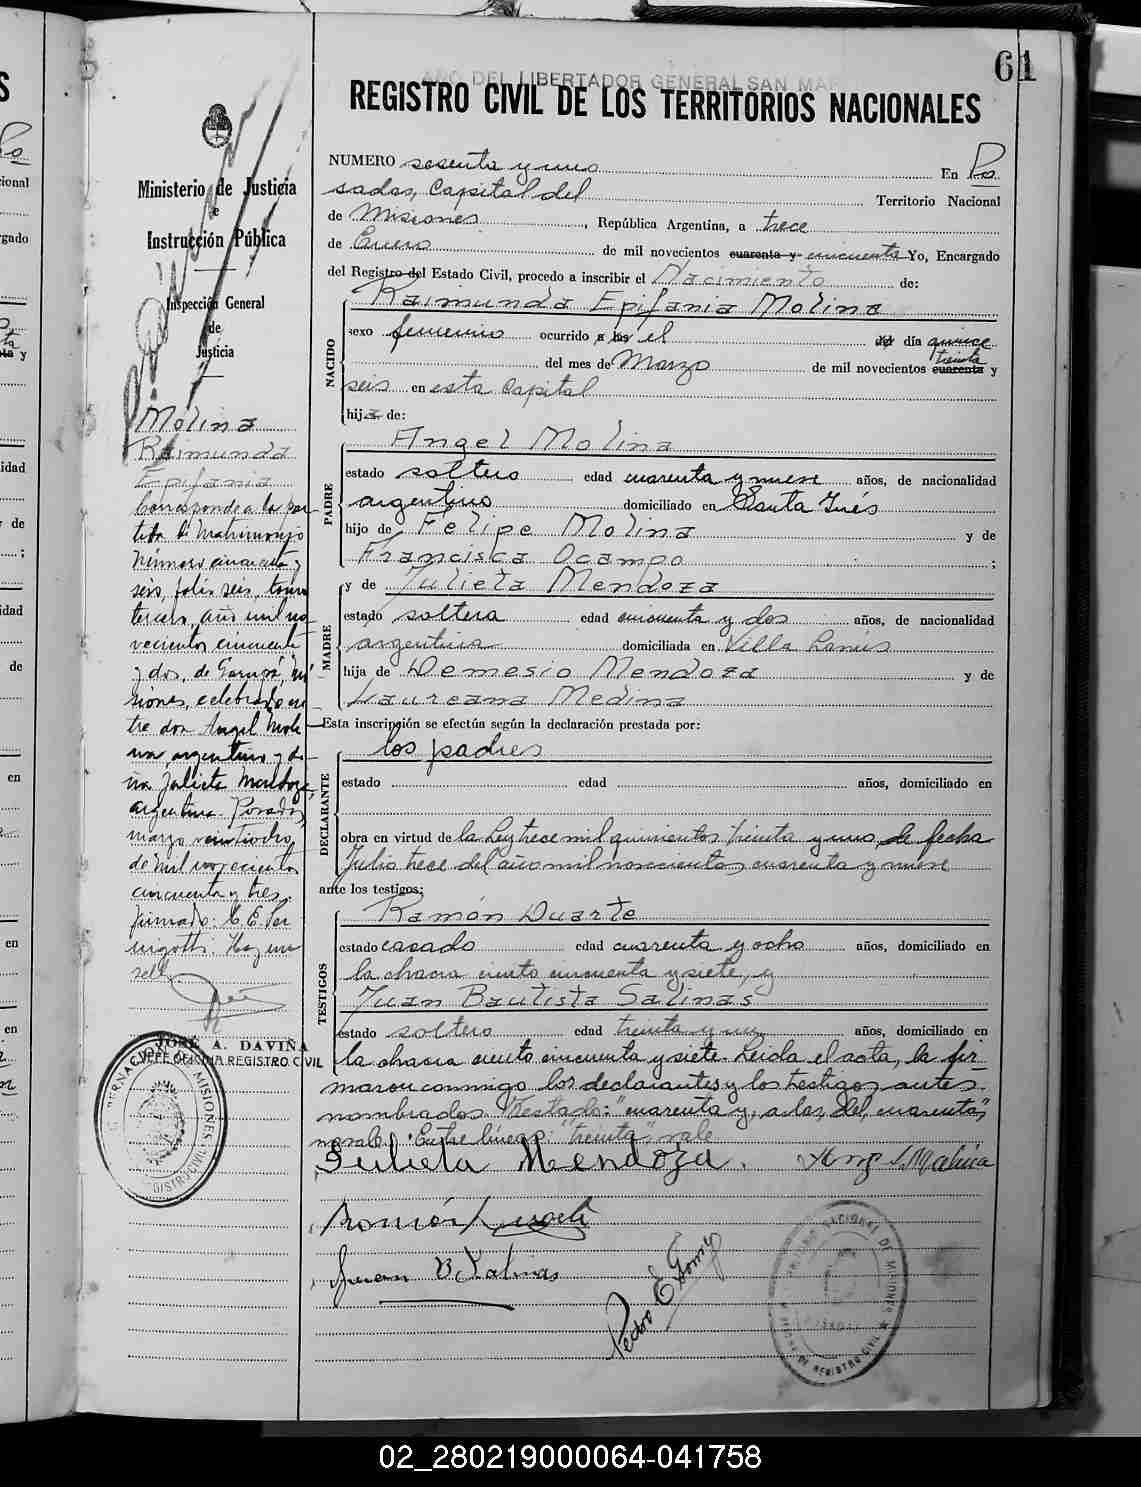 61
AÑO DEL LIBERTADOR GENERAL SAN MAR
REGISTRO CIVIL DE LOS TERRITORIOS NACIONALES
NUMERO sesenta y uno En Po
sadas, Capital del Territorio Nacional
de Misiones, República Argentina, a trece
de Enero de mil novecientos cuarenta y cincuenta Yo, Encargado
del Registro del Estado Civil, procedo a inscribir el Nacimiento de:
NACIDO
Raimunda Epifania Molina
sexo femenino ocurrido a las el del día quince
treinta
del mes de Marzo de mil novecientos cuarenta y
seis en esta Capital
hija de:
PADRE
Angel Molina
estado soltero edad cuarenta y nueve años, de nacionalidad
argentino domiciliado en Santa Inés
hijo de Felipe Molina y de
Francisca Ocampo ;
MADRE
y de Julieta Mendoza
estado soltera edad cincuenta y dos años, de nacionalidad
argentina domiciliada en Villa Lanús
hija de Demesio Mendoza y de
Laureana Medina
Esta inscripción se efectúa según la declaración prestada por:
DECLARANTE
los padres
estado edad años, domiciliado en
obra en virtud de la Ley trece mil quinientos treinta y uno, de fecha
Julio trece del año mil novecientos cuarenta y nueve
ante los testigos:
TESTIGOS
Ramón Duarte
estado casado edad cuarenta y ocho años, domiciliado en
la chacra ciento cincuenta y siete, y
Juan Bautista Salinas
estado soltero edad treinta y un años, domiciliado en
la chacra ciento cincuenta y siete. Leida el acta, la fir-
maron conmigo los declarantes y los testigos antes
nombrados. Testado: "cuarenta y, a las, del, cuarenta",
no vale. Entre líneas: "treinta", vale
Julieta Mendoza. Angel Molina
Ramón Duarte
Juan B Salinas
Pedro E Gomez
Ministerio de Justicia
e
Instrucción Pública
Inspección General
de
Justicia
Molina
Raimunda
Epifania
Corresponde a la par-
tida de Matrimonio
Número cincuenta y
seis, folio seis, tomo
tercero, año mil no
vecientos cincuenta
y dos, de Garupá, Mi
siones, celebrado en
tre don Angel Moli
na, argentino y do-
ña Julieta Mendoza,
argentina. Posadas,
marzo veintiocho
de mil novecientos
cincuenta y tres.
firmado: C. E. Per
nigotti. Hay un
sello
JOSÉ A. DAVIÑA
JEFE OFICINA REGISTRO CIVIL
02_280219000064-041758